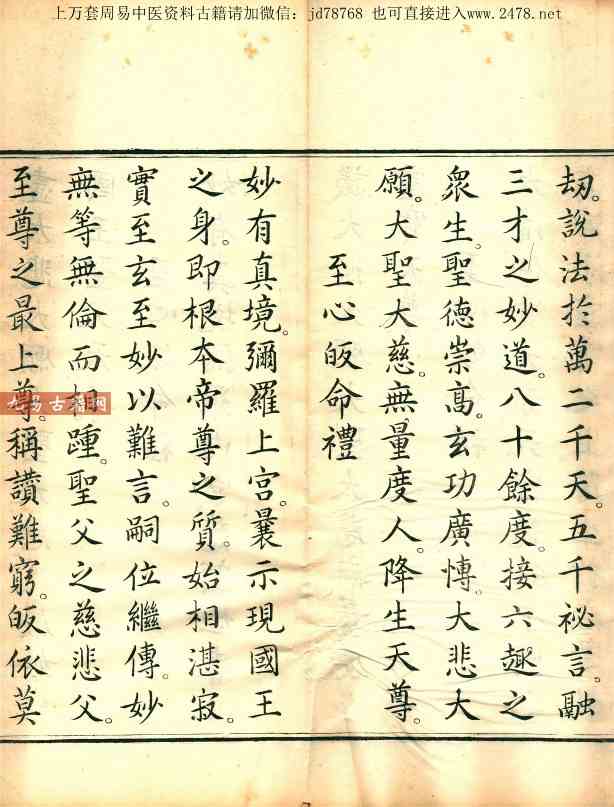 上万套周易中医资料古籍请加微信：jd78768 也可直接进入www.2478.net
刼。說法於萬二千天。五千祕言。融
三才之妙道。八十餘度。接六趣之
衆生。聖德崇高。玄功廣愽。大悲大
願。大聖大慈。無量度人。降生天尊。
至心皈命禮
妙有真境。彌羅上宮。曩示現國王
之身。即根本帝尊之質。始相湛寂。
實至玄至妙以難言。嗣位繼傳。妙
無等無倫而相踵。聖父之慈悲父。
至尊之最上尊。稱讚難窮。皈依莫
九易古籍网